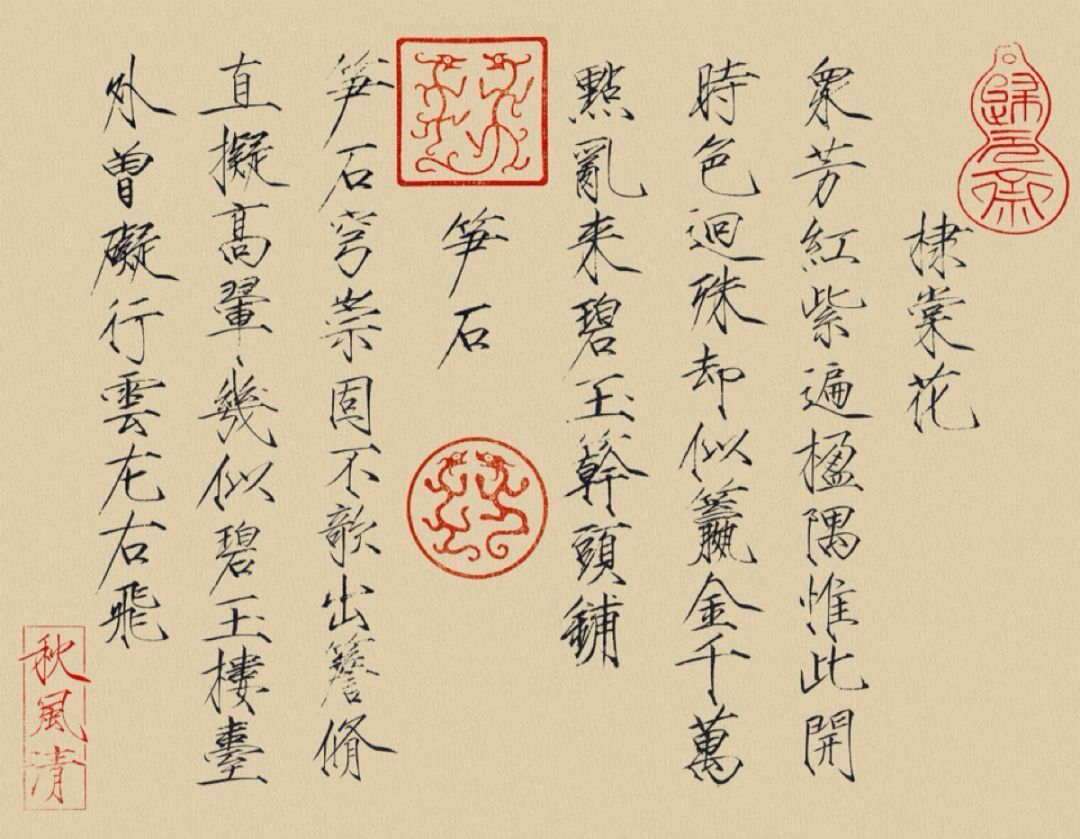 棣棠花
衆芳紅紫遍楹隅惟此開
時色逈殊却似籯金千萬
點亂来碧玉簳頭鋪
笋石
笋石穹崇固不欹出簷脩
直擬高翬幾似碧玉樓臺
外曾礙行雲左右飛
秋風清